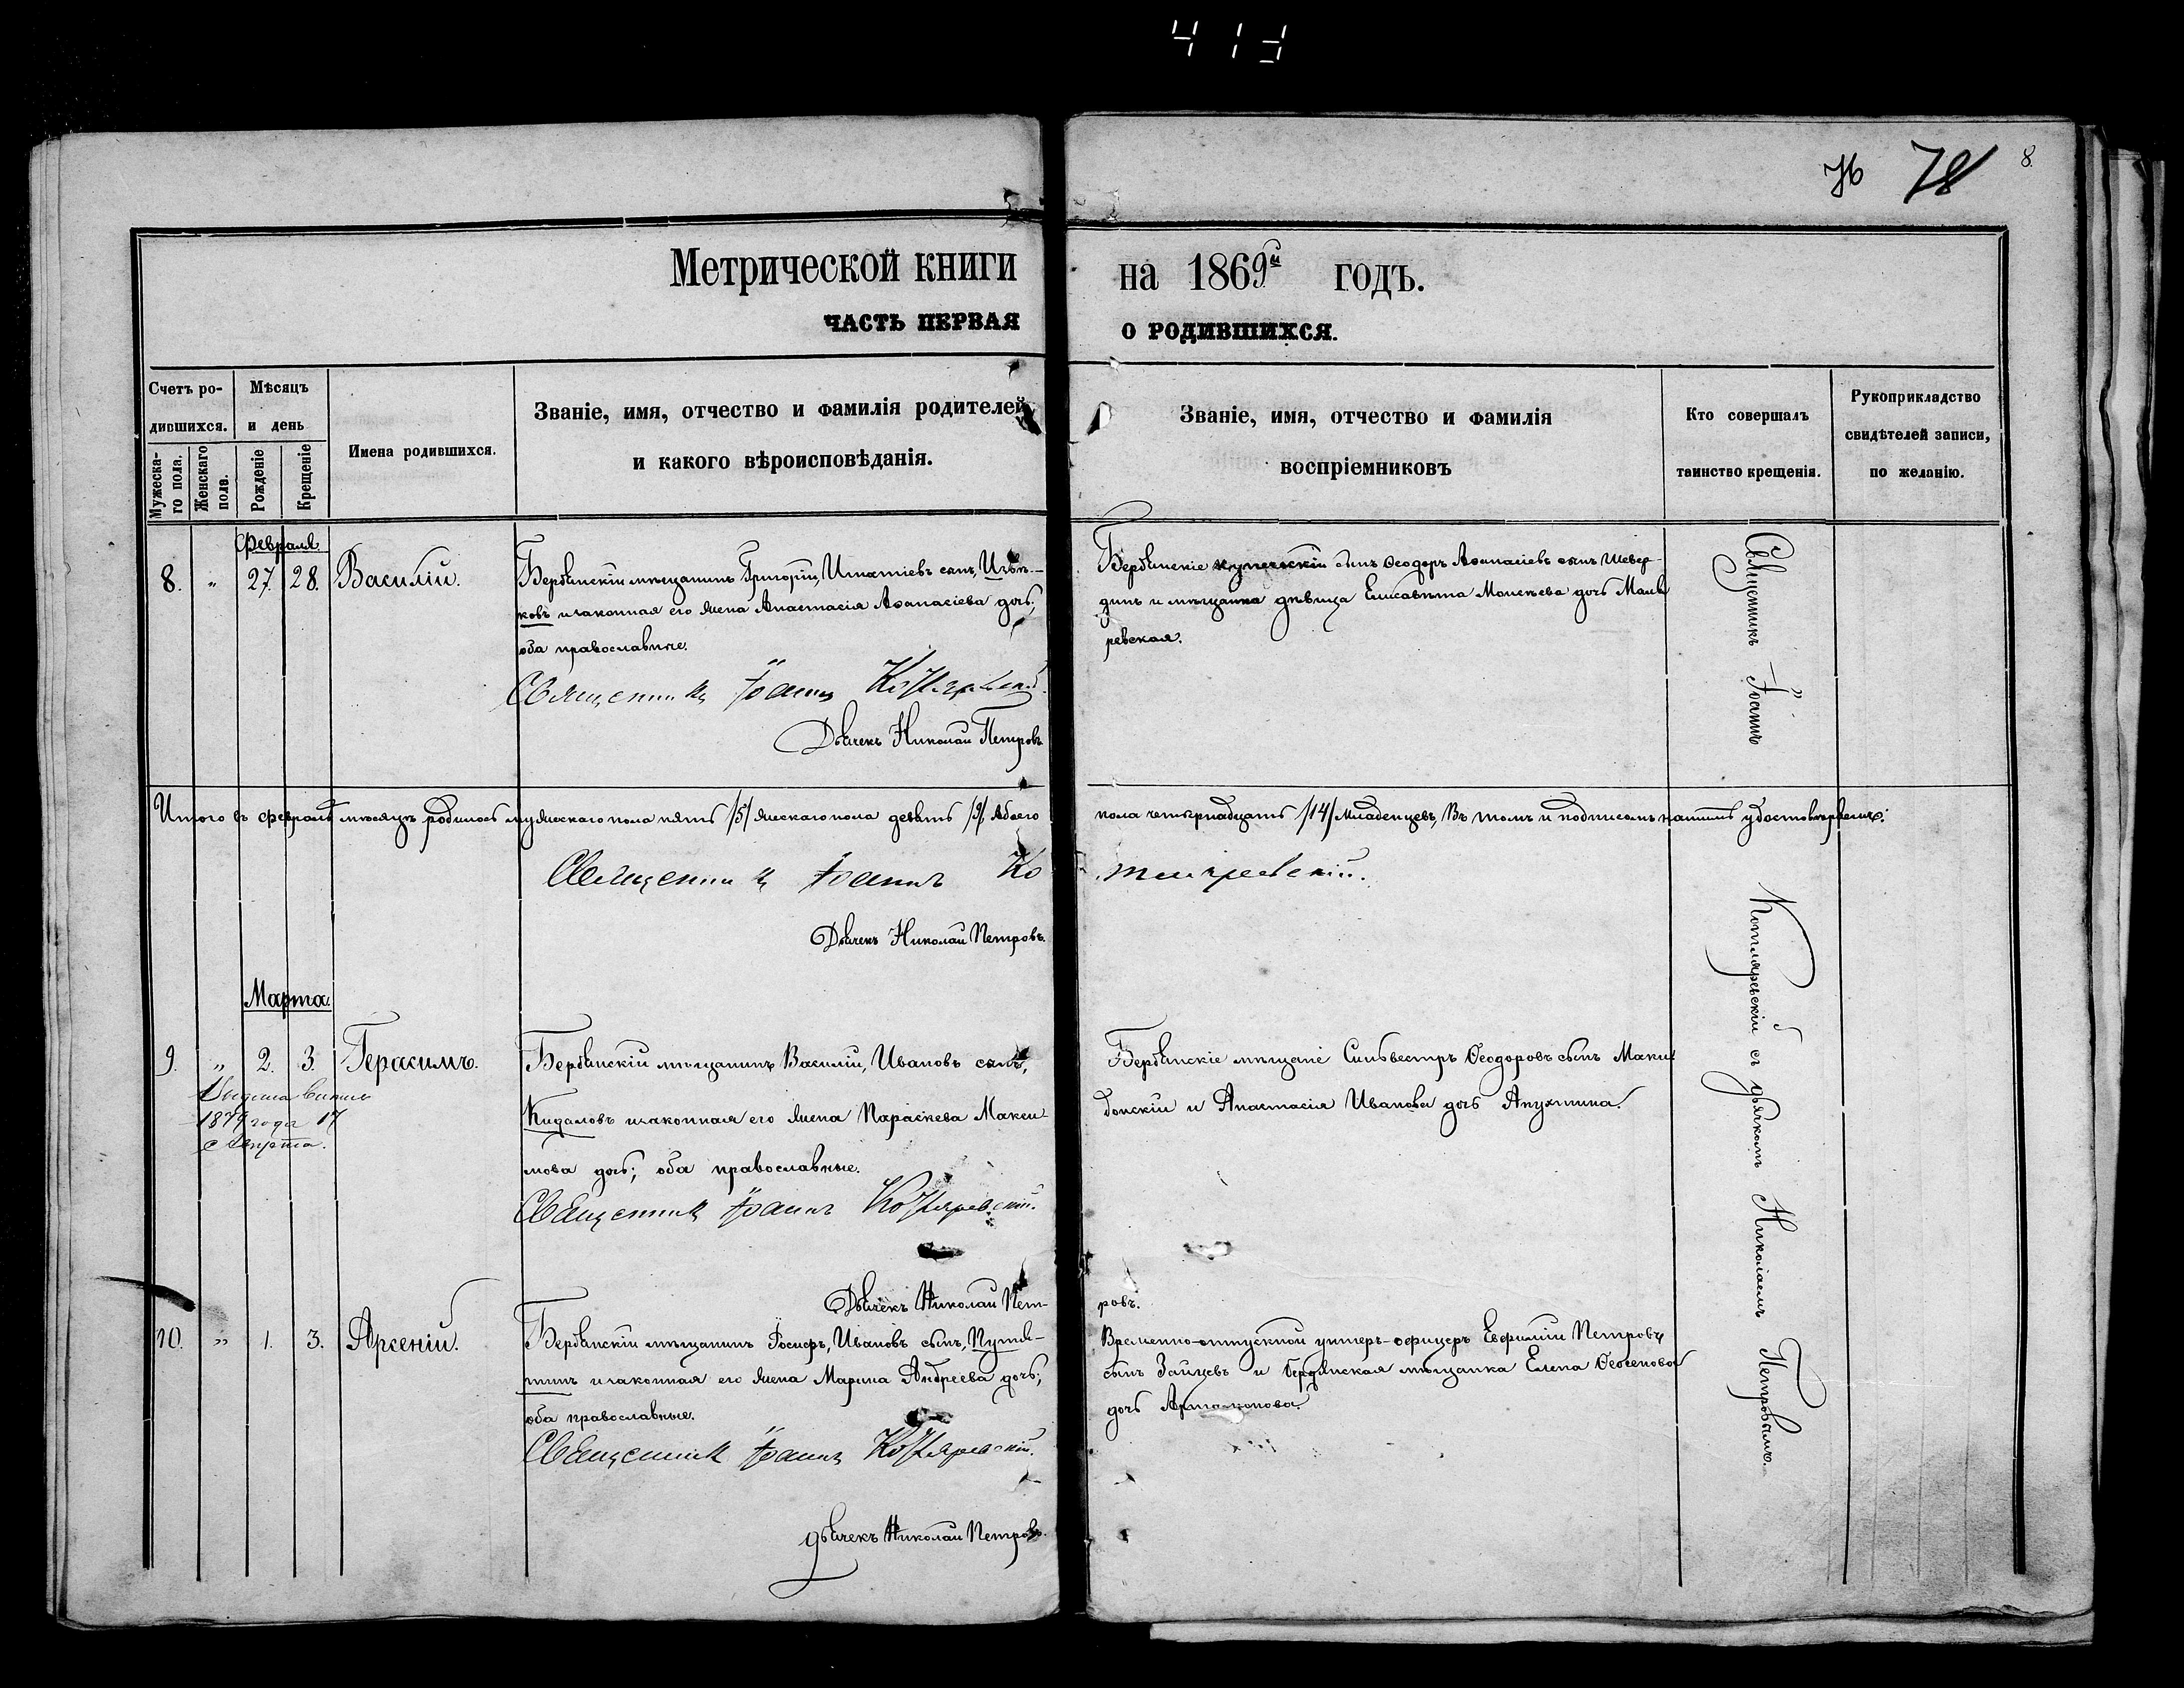 413
76 78 8.
Метрической книги на 1869й годъ.
ЧАСТЬ ПЕРВАЯ О РОДИВШИХСЯ.
Счетъ ро-
дившихся.
Мужеска-
го пола.
Женскаго
пола.
Мѣсяцъ
и день
Рожденіе
Крещеніе
Имена родившихся.
Званіе, имя, отчество и фамилія родителей
и какого вѣроисповѣданія.
Званіе, имя, отчество и фамилія
воспріемниковъ
Кто совершалъ
таинство крещенія.
Рукоприкладство
свидѣтелей записи,
по желанію.
Февраля
8. " 27. 28. Василій.
Бердянскій мѣщанинъ Григорій, Игнатіевъ сынъ,
ковъ и законная его жена Анастасія Аѳанасіева дочь;
оба православные.
Священникъ Іоаннъ Котляревскій
Дьячекъ Николай Петровъ
Бердянскіе купеческій сынъ Ѳеодоръ Аѳанасіевъ сынъ Шевер-
динъ и мѣщанка дѣвица Елисавета Моисѣева дочь
ревская.
Итого въ февралѣ мѣсяцѣ родилось мужескаго пола пять /5/ женскаго пола девять /9/ Обоего пола четырнадцать /14/ младенцевъ, Въ томъ и подписомъ нашимъ удостовѣряемъ:
Священникъ Іоаннъ Котляревскій.
Дьячекъ Николай Петровъ.
Марта.
9. " 2. 3. Герасимъ.
1879 года 17
Августа.
Бердянскій мѣщанинъ Василій, Ивановъ сынъ,
Кидаловъ и законная его жена Параскева Макси
мова дочь; оба православные.
Священникъ Іоаннъ Котляревскій.
Дьячекъ Николай Пет-
ровъ.
Бердянскіе мѣщане Сильвестръ Ѳеодоровъ сынъ Маки
донскій и Анастасія Иванова дочь Апухтина.
10. " 1. 3. Арсеній.
Бердянскій мѣщанинъ Іосифъ, Ивановъ сынъ, Путя-
тинъ и законная его жена Марина Андреева дочь;
оба православные.
Священникъ Іоаннъ Котляревскій.
дьячекъ Николай Петровъ.
Временно-отпускной унтеръ-офицеръ Евфимій Петровъ
сынъ Зайцевъ и Бердянская мѣщанка Елена
дочь Артамонова.
Священникъ Іоаннъ Котляревскій съ дьячкомъ Николаемъ Петровымъ.